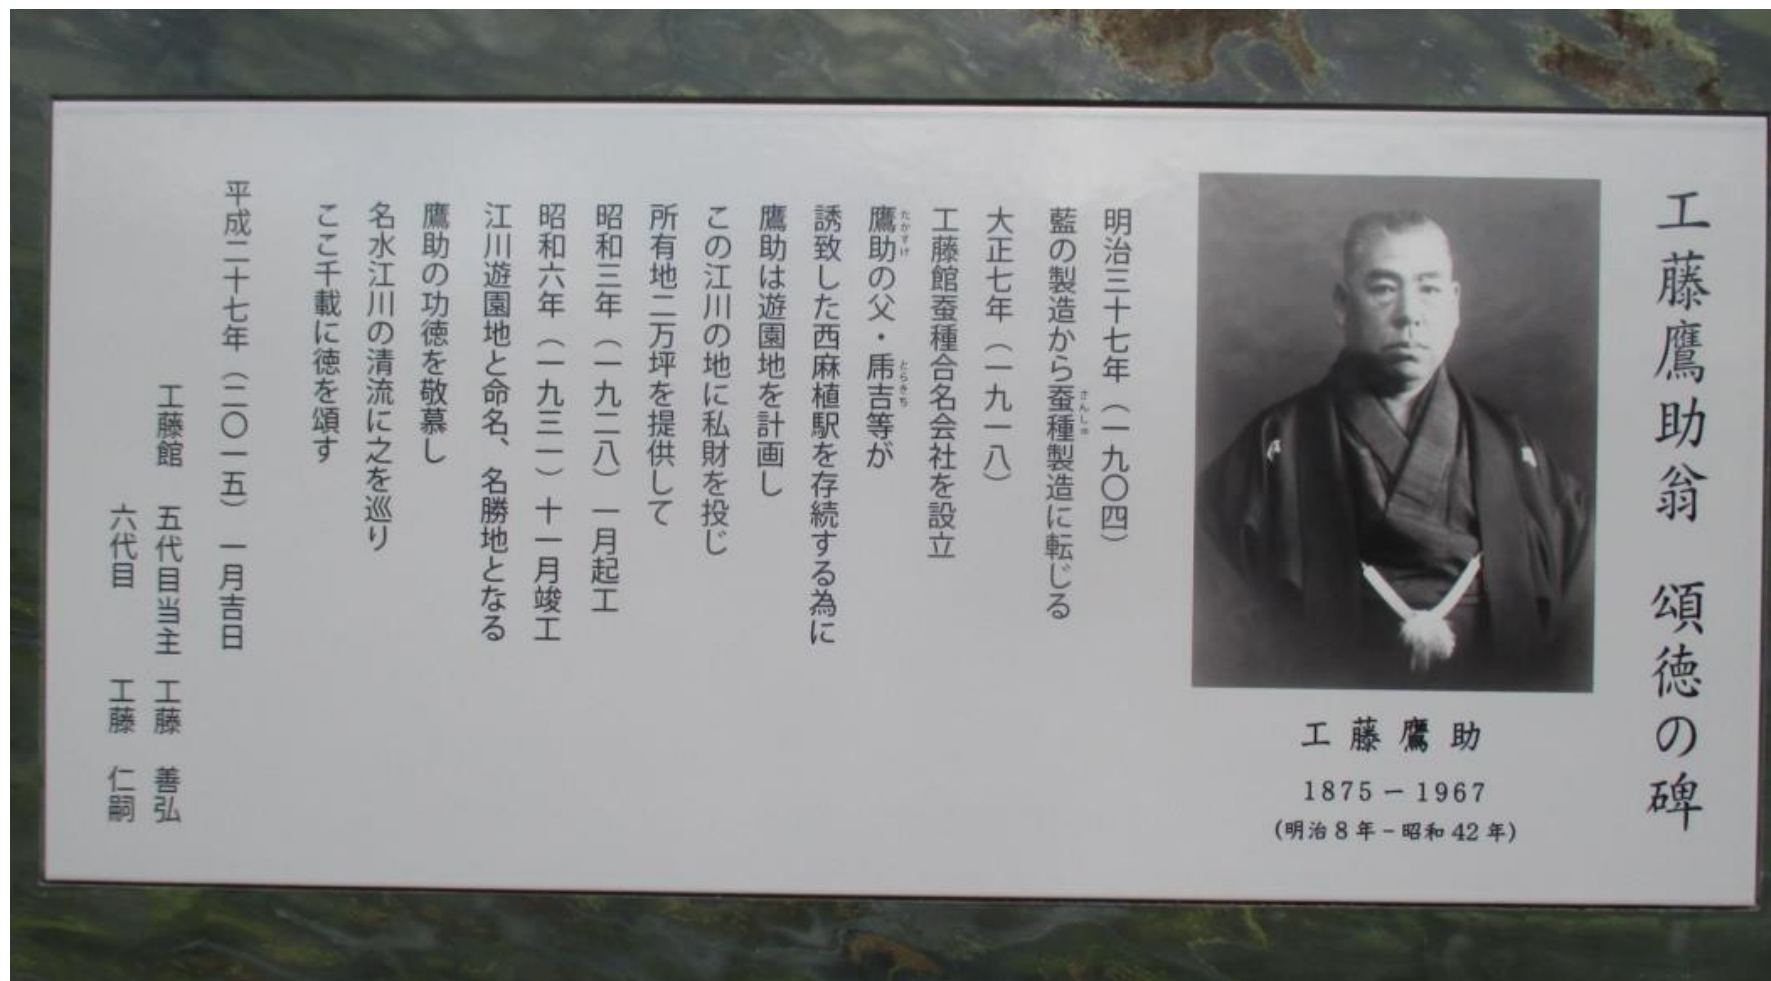 工藤鷹助翁　頌徳の碑
工藤鷹助
1875－1967
(明治8年－昭和42年)
明治三十七年（一九〇四）
藍の製造から蚕種製造に転じる
さんしゅ
大正七年（一九一八）
工藤館蚕種合名会社を設立
鷹助の父・乕吉等が
たかすけ
とらきち
誘致した西麻植駅を存続する為に
鷹助は遊園地を計画し
この江川の地に私財を投じ
所有地二万坪を提供して
昭和三年（一九二八）一月起工
昭和六年（一九三一）十一月竣工
江川遊園地と命名、名勝地となる
鷹助の功徳を敬慕し
名水江川の清流に之を巡り
ここ千載に徳を頌す
平成二十七年（二〇一五）一月吉日
工藤館　五代目当主　工藤　善弘
六代目　工藤　仁嗣